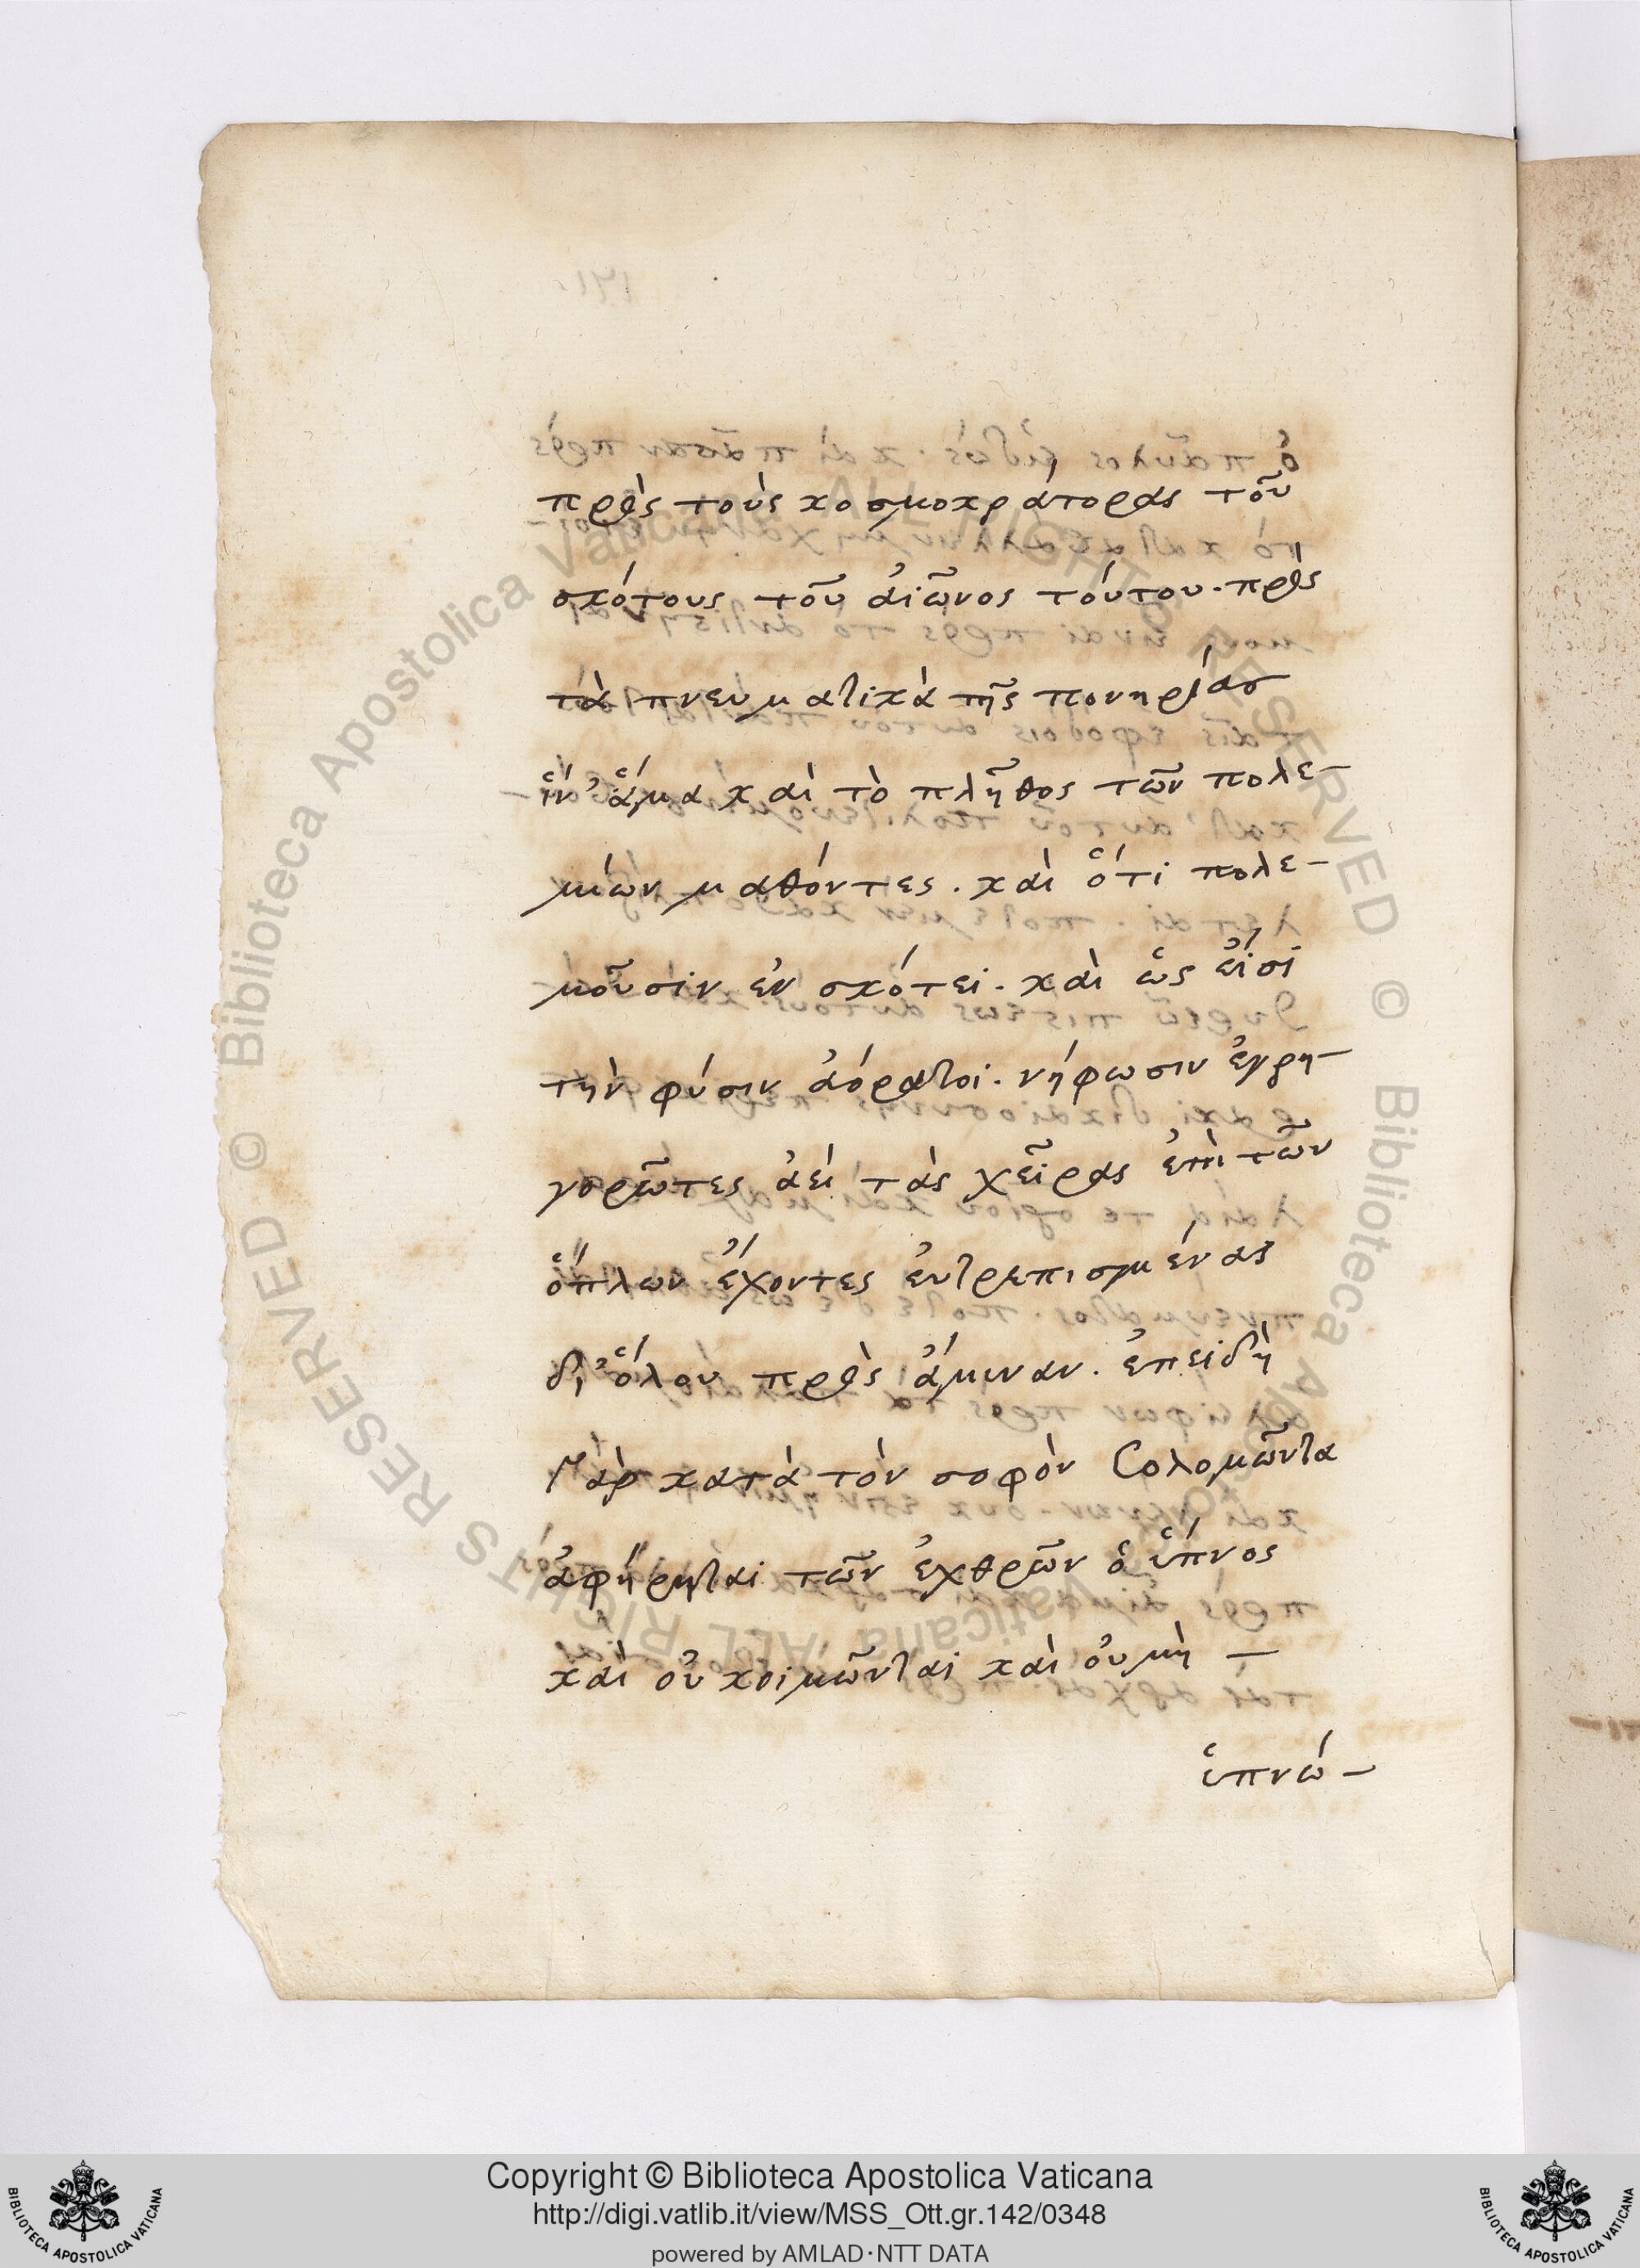 πρὸς τοὺς κοσμοκράτορας τοῦ
σκότους τοῦ ἀιῶνος τόυτου. πρὸς
τὰ πνευματικὰ τῆς πονηρίας
ἵν' ἅμα καὶ τὸ πλῆθος τῶν πολε-
μίων μαθόντες. καὶ ὅτι πολε-
μοῦσιν ἐν σκότει. καὶ ὡς ἐίσὶ
τὴν φύσιν ἀόρατοι. νήφωσιν ἐγρη-
γορῶτες ἀεὶ τὰς χεῖρας ἐπὶ τῶν
ὅπλων ἔχοντες ἐυτρεπισμένας
δι' ὅλου πρὸς ἄμυναν. ἐπειδὴ
γὰρ κατὰ τὸν σοφὸν Σολομῶντα
ἀφήρηται τῶν ἐχθρῶν ὁ ὕπνος
καὶ οὐ κοιμῶνται καὶ οὐ μὴ —
ὑπνώ-
Copyright © Biblioteca Apostolica Vaticana
http://digi.vatlib.it/view/MSS_Ott.gr.142/0348
powered by AMLAD·NTT DATA
BIBLIOTECA APOSTOLICA VATICANA
BIBLIOTECA APOSTOLICA VATICANA
© Biblioteca Apostolica Vaticana ALL RIGHTS RESERVED © Biblioteca Apostolica Vaticana ALL RIGHTS RESERVED